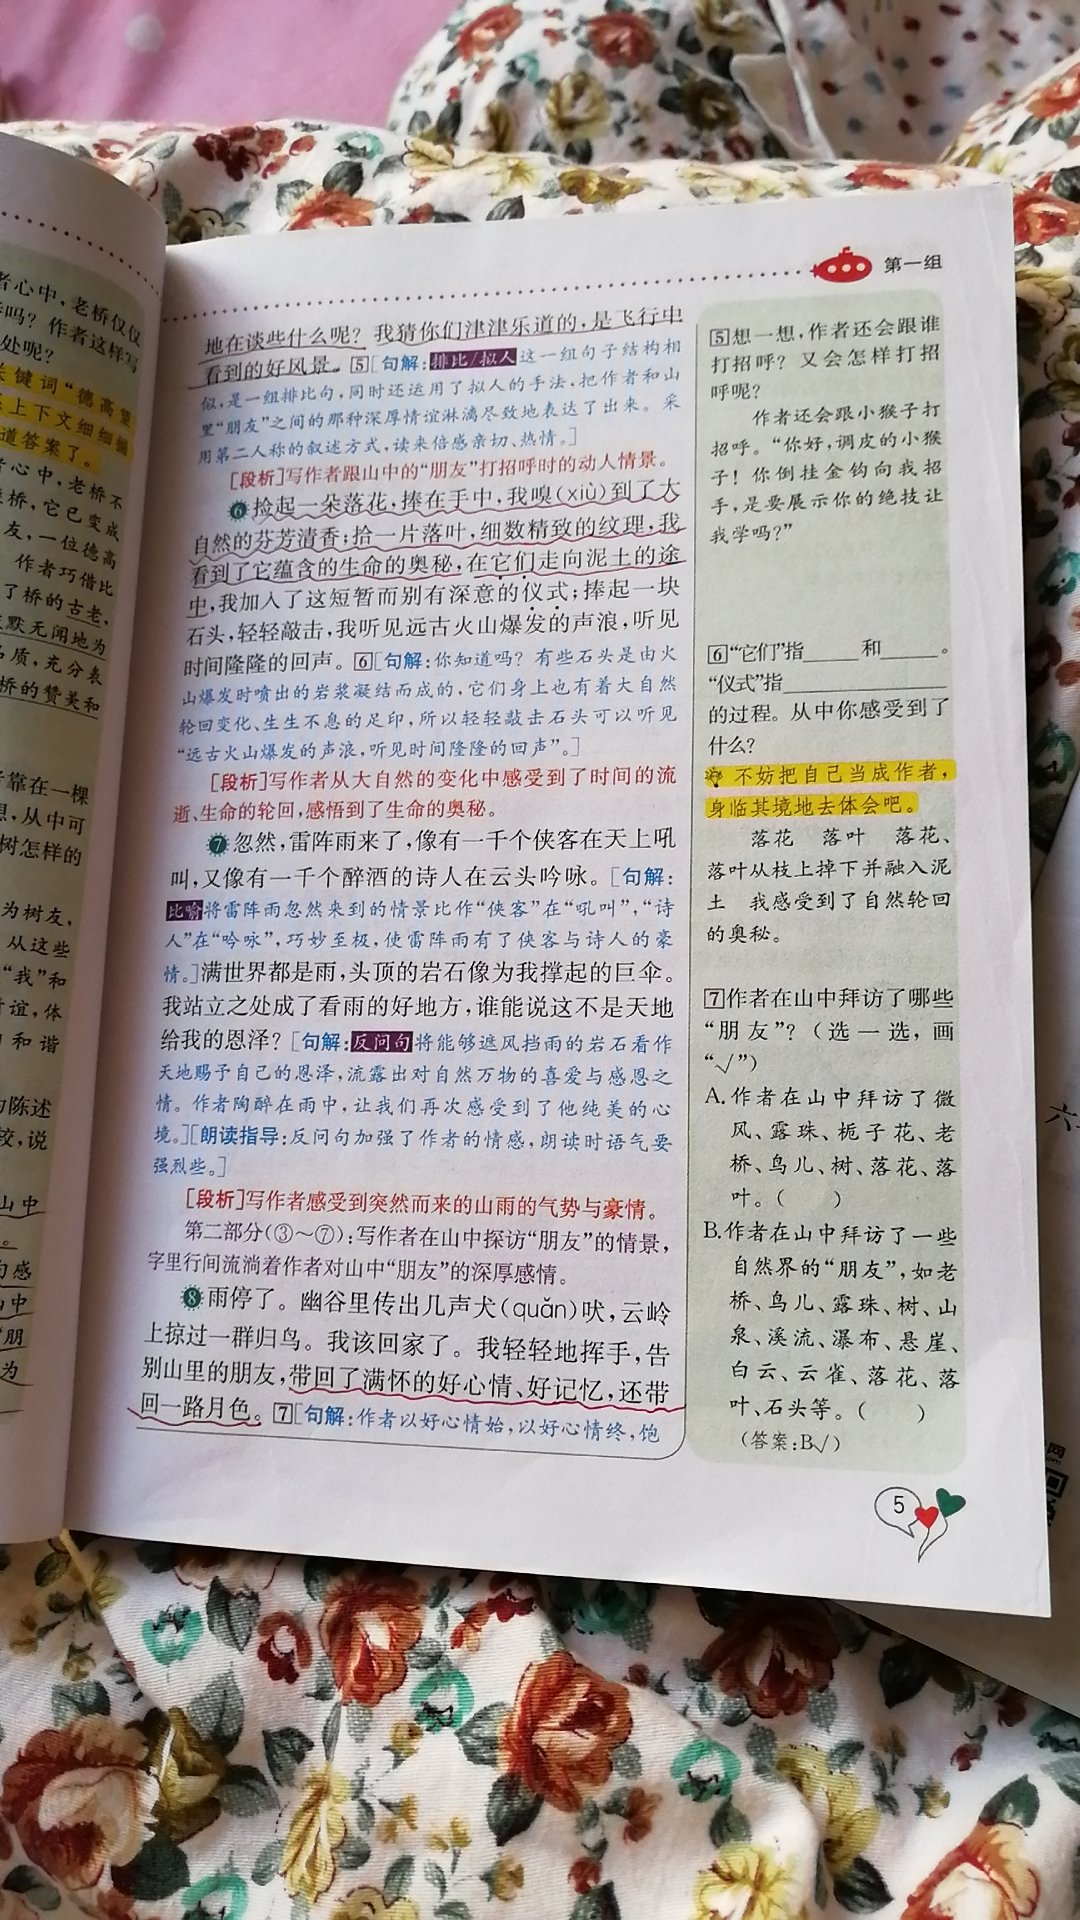 者心中，老桥仅仅
吗？作者这样写
处呢？
关键词“德高望
上下文细细揣
道答案了。
者心中，老桥不
桥，它已变成
友，一位德高
作者巧借比
了桥的古老，
默无闻地为
品质，充分表
桥的赞美和
靠在一棵
想，从中可
树怎样的
为树友，
从这些
“我”和
谊，体
和谐
陈述
较，说
山中
。
句感
山中
朋
为
第一组
地在谈些什么呢？我猜你们津津乐道的，是飞行中
看到的好风景。5[句解：排比/拟人这一组句子结构相
似，是一组排比句，同时还运用了拟人的手法，把作者和山
里“朋友”之间的那种深厚情谊淋漓尽致地表达了出来。采
用第二人称的叙述方式，读来倍感亲切、热情。]
[段析]写作者跟山中的“朋友”打招呼时的动人情景。
6捡起一朵落花，捧在手中，我嗅(xiù)到了大
自然的芬芳清香；拾一片落叶，细数精致的纹理，我
看到了它蕴含的生命的奥秘，在它们走向泥土的途
中，我加入了这短暂而别有深意的仪式；捧起一块
石头，轻轻敲击，我听见远古火山爆发的声浪，听见
时间隆隆的回声。6[句解：你知道吗？有些石头是由火
山爆发时喷出的岩浆凝结而成的，它们身上也有着大自然
轮回变化、生生不息的足印，所以轻轻敲击石头可以听见
“远古火山爆发的声浪，听见时间隆隆的回声”。]
[段析]写作者从大自然的变化中感受到了时间的流
逝、生命的轮回，感悟到了生命的奥秘。
7忽然，雷阵雨来了，像有一千个侠客在天上吼
叫，又像有一千个醉酒的诗人在云头吟咏。[句解：
比喻将雷阵雨忽然来到的情景比作“侠客”在“吼叫”，“诗
人”在“吟咏”，巧妙至极，使雷阵雨有了侠客与诗人的豪
情。]满世界都是雨，头顶的岩石像为我撑起的巨伞。
我站立之处成了看雨的好地方，谁能说这不是天地
给我的恩泽？[句解：反问句将能够遮风挡雨的岩石看作
天地赐予自己的恩泽，流露出对自然万物的喜爱与感恩之
情。作者陶醉在雨中，让我们再次感受到了他纯美的心
境。][朗读指导：反问句加强了作者的情感，朗读时语气要
强烈些。]
[段析]写作者感受到突然而来的山雨的气势与豪情。
第二部分(③～⑦)：写作者在山中探访“朋友”的情景，
字里行间流淌着作者对山中“朋友”的深厚感情。
8雨停了。幽谷里传出几声犬(quǎn)吠，云岭
上掠过一群归鸟。我该回家了。我轻轻地挥手，告
别山里的朋友，带回了满怀的好心情、好记忆，还带
回一路月色。7[句解：作者以好心情始，以好心情终，饱
5想一想，作者还会跟谁
打招呼？又会怎样打招
呼呢？
作者还会跟小猴子打
招呼。“你好，调皮的小猴
子！你倒挂金钩向我招
手，是要展示你的绝技让
我学吗？”
6“它们”指____和____。
“仪式”指____________
的过程。从中你感受到了
什么？
不妨把自己当成作者，
身临其境地去体会吧。
落花 落叶 落花、
落叶从枝上掉下并融入泥
土 我感受到了自然轮回
的奥秘。
7作者在山中拜访了哪些
“朋友”？（选一选，画
“√”）
A.作者在山中拜访了微
风、露珠、栀子花、老
桥、鸟儿、树、落花、落
叶。（ ）
B.作者在山中拜访了一些
自然界的“朋友”，如老
桥、鸟儿、露珠、树、山
泉、溪流、瀑布、悬崖、
白云、云雀、落花、落
叶、石头等。（ ）
（答案：B√）
5
六
网